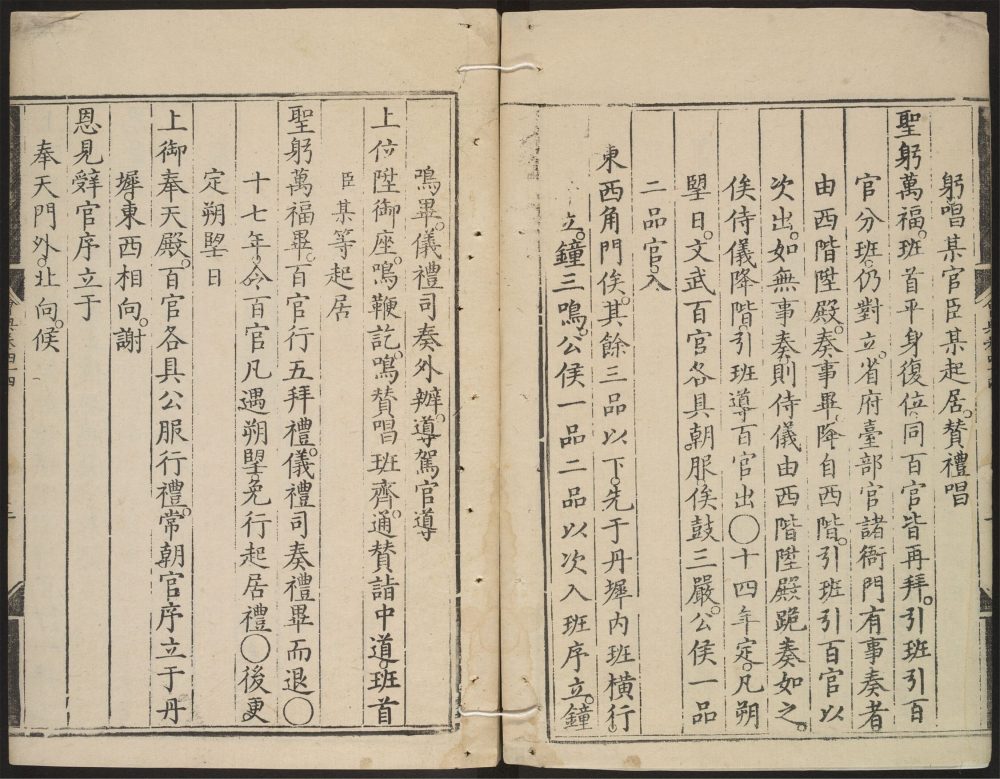 躬唱某官臣某起居。贊禮唱
聖躬萬福。班首平身復位。同百官皆再拜。引班引百
官分班。仍對立。省府臺部官諸衙門有事奏者
由西階陞殿。奏事畢。降自西階。引班引百官以
次出。如無事奏。則侍儀由西階陞殿跪奏如之。
俟侍儀降階。引班導百官出〇十四年定。凡朔
朢日。文武百官各具朝服俟鼓三嚴。公侯一品
二品官。入
東西角門俟。其餘三品以下。先于丹墀內班橫行。
立。鐘三鳴。公侯一品二品以次入班序立。鐘
鳴畢。儀禮司奏外辦。導駕官導
上位陞御座。鳴鞭訖。鳴贊唱班齊。通贊詣中道。班首
臣某等起居
聖躬萬福畢。百官行五拜禮。儀禮司奏禮畢而退〇
十七年。令百官凡遇朔朢免行起居禮〇後更
定朔朢日
上御奉天殿。百官各具公服行禮。常朝官序立于丹
墀。東西相向。謝
恩見辭官序立于
奉天門外。北向。候